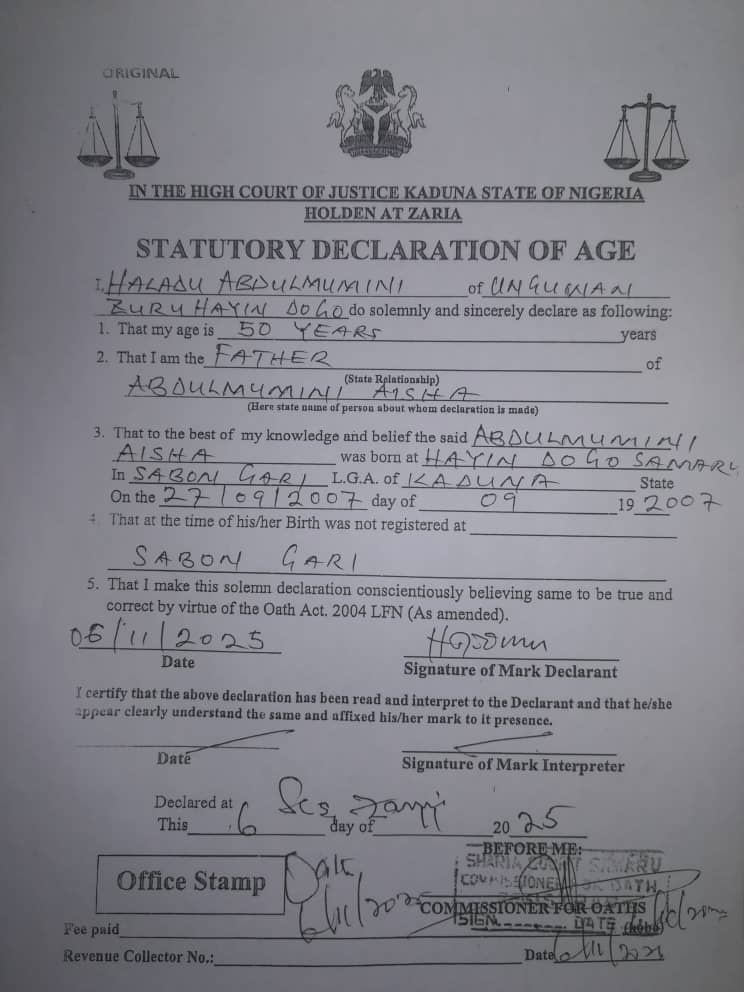 ORIGINAL
IN THE HIGH COURT OF JUSTICE KADUNA STATE OF NIGERIA
HOLDEN AT ZARIA
STATUTORY DECLARATION OF AGE
I, HALADU ABDULMUMINI of UNGUWAN
ZURU HAYIN DOGO do solemnly and sincerely declare as following:
1. That my age is 50 YEARS years
2. That I am the FATHER of
(State Relationship)
ABDULMUMINI AISHA
(Here state name of person about whom declaration is made)
3. That to the best of my knowledge and belief the said ABDULMUMINI
AISHA was born at HAYIN DOGO SAMARU
In SABON GARI L.G.A. of KADUNA State
On the 27/09/2007 day of 09 19 2007
4. That at the time of his/her Birth was not registered at
SABON GARI
5. That I make this solemn declaration conscientiously believing same to be true and
correct by virtue of the Oath Act. 2004 LFN (As amended).
06/11/2025
Date Signature of Mark Declarant
I certify that the above declaration has been read and interpret to the Declarant and that he/she
appear clearly understand the same and affixed his/her mark to it presence.
Date Signature of Mark Interpreter
Declared at
This 6 day of 20 25
BEFORE ME:
SHARIA COURT SAMARU
COMMISSIONER OATH
Office Stamp
Date
6/11/2025
COMMISSIONER FOR OATHS
SIGN DATE
Fee paid (kobo)
Revenue Collector No.: Date 6/11/2025